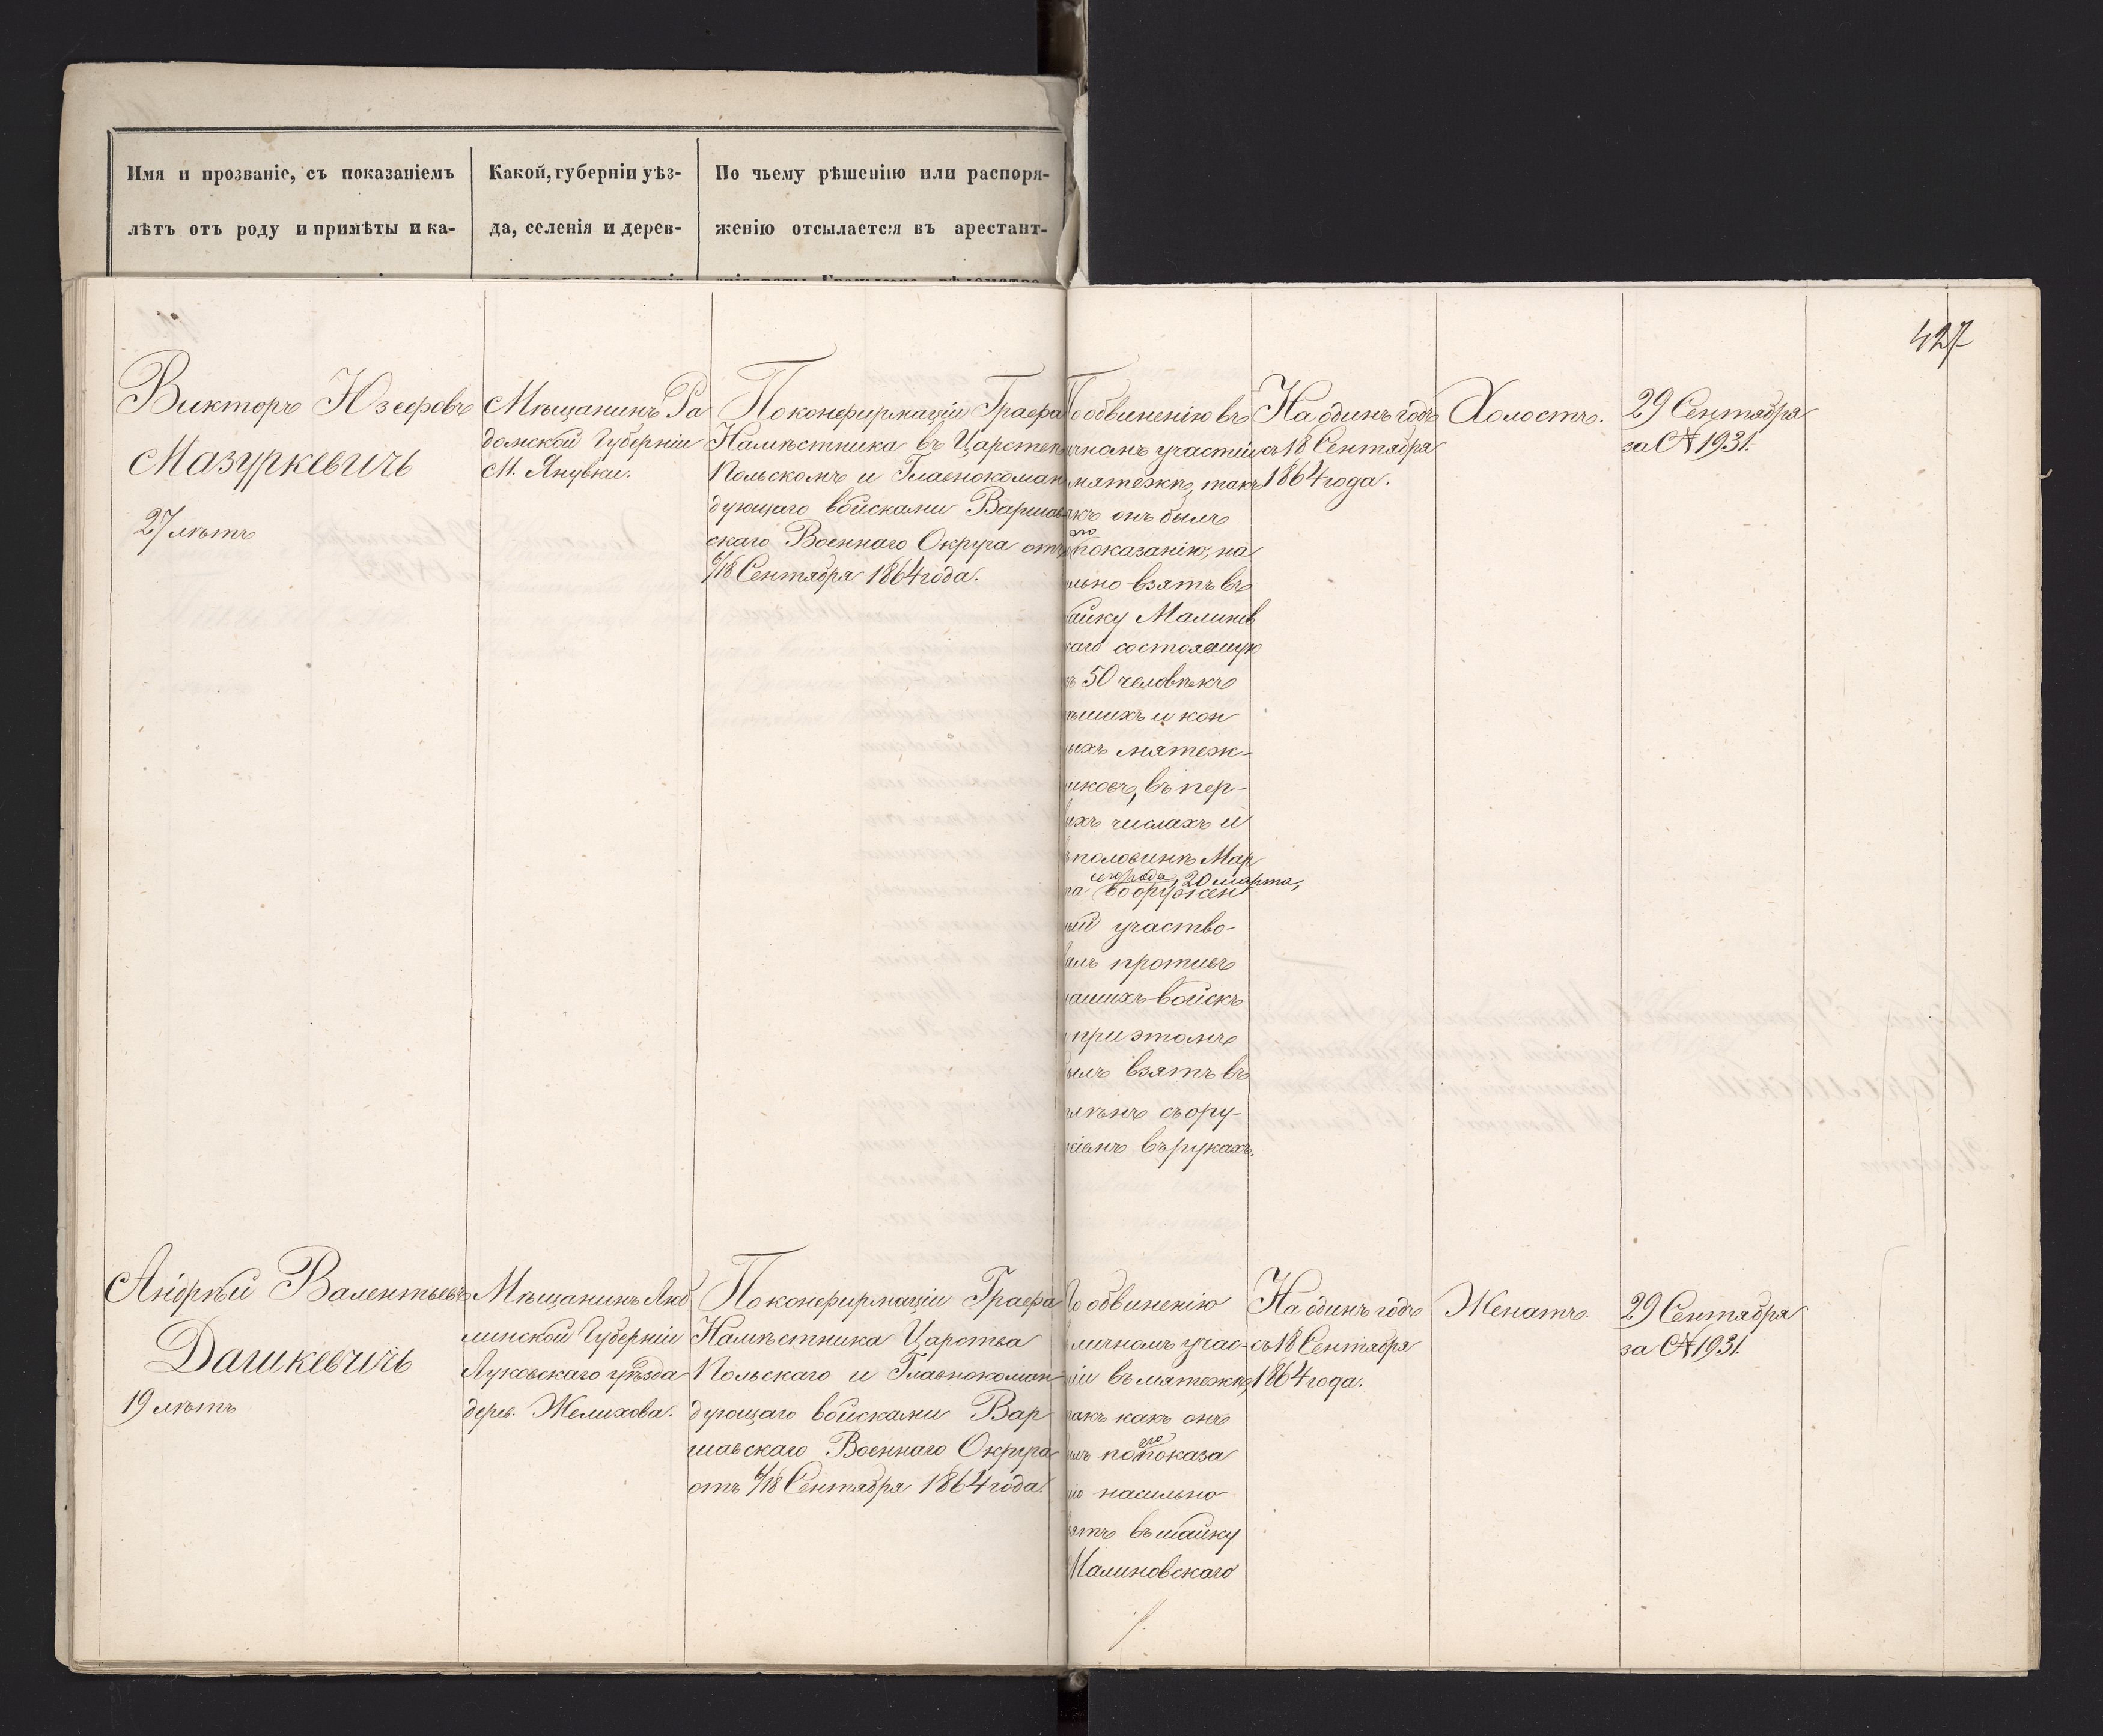 Имя и прозваніе, съ показаніемъ
лѣтъ отъ роду и примѣты и ка-
Какой, губерніи уѣз-
да, селенія и дерев-
По чьему рѣшенію или распоря-
женію отсылается въ арестант-
427
Викторъ Юзефовъ
Мазуркевичъ
27 лѣтъ
Мѣщанинъ Ра
домской Губерніи
М. Яновки.
По конфирмаціи Графа
Намѣстника въ Царствѣ
Польскомъ и Главнокоман
дующаго войсками Варшав
скаго Военнаго Округа отъ
6/18 Сентября 1864 года.
По обвиненію въ
личномъ участіи
мятежѣ, такъ
какъ онъ былъ
его
показанію, на
сильно взятъ въ
шайку Малинов
скаго состоявшую
50 человѣкъ
пѣшихъ и кон
ныхъ мятеж-
никовъ, въ пер-
выхъ числахъ и
половинѣ Мар
20 марта,
та вооружен
ный участво-
валъ противъ
нашихъ войскъ
при этомъ
былъ взятъ въ
плѣнъ съ ору-
жіемъ въ рукахъ.
На одинъ годъ
съ 18 Сентября
1864 года.
Холостъ.
29 Сентября
за № 1931.
Андрѣй Валентьевъ
Дашкевичъ
19 лѣтъ
Мѣщанинъ Люб
линской Губерніи
Луковскаго уѣзда
дерев. Желихова.
По конфирмаціи Графа
Намѣстника Царства
Польскаго и Главнокоман
дующаго войсками Вар
шавскаго Военнаго Округа
отъ 6/18 Сентября 1864 года.
По обвиненію
личномъ учас-
тіи въ мятежѣ,
такъ какъ онъ
его
былъ по показа
нію насильно
взятъ въ шайку
Малиновскаго
На одинъ годъ
съ 18 Сентября
1864 года.
Женатъ.
29 Сентября
за № 1931.